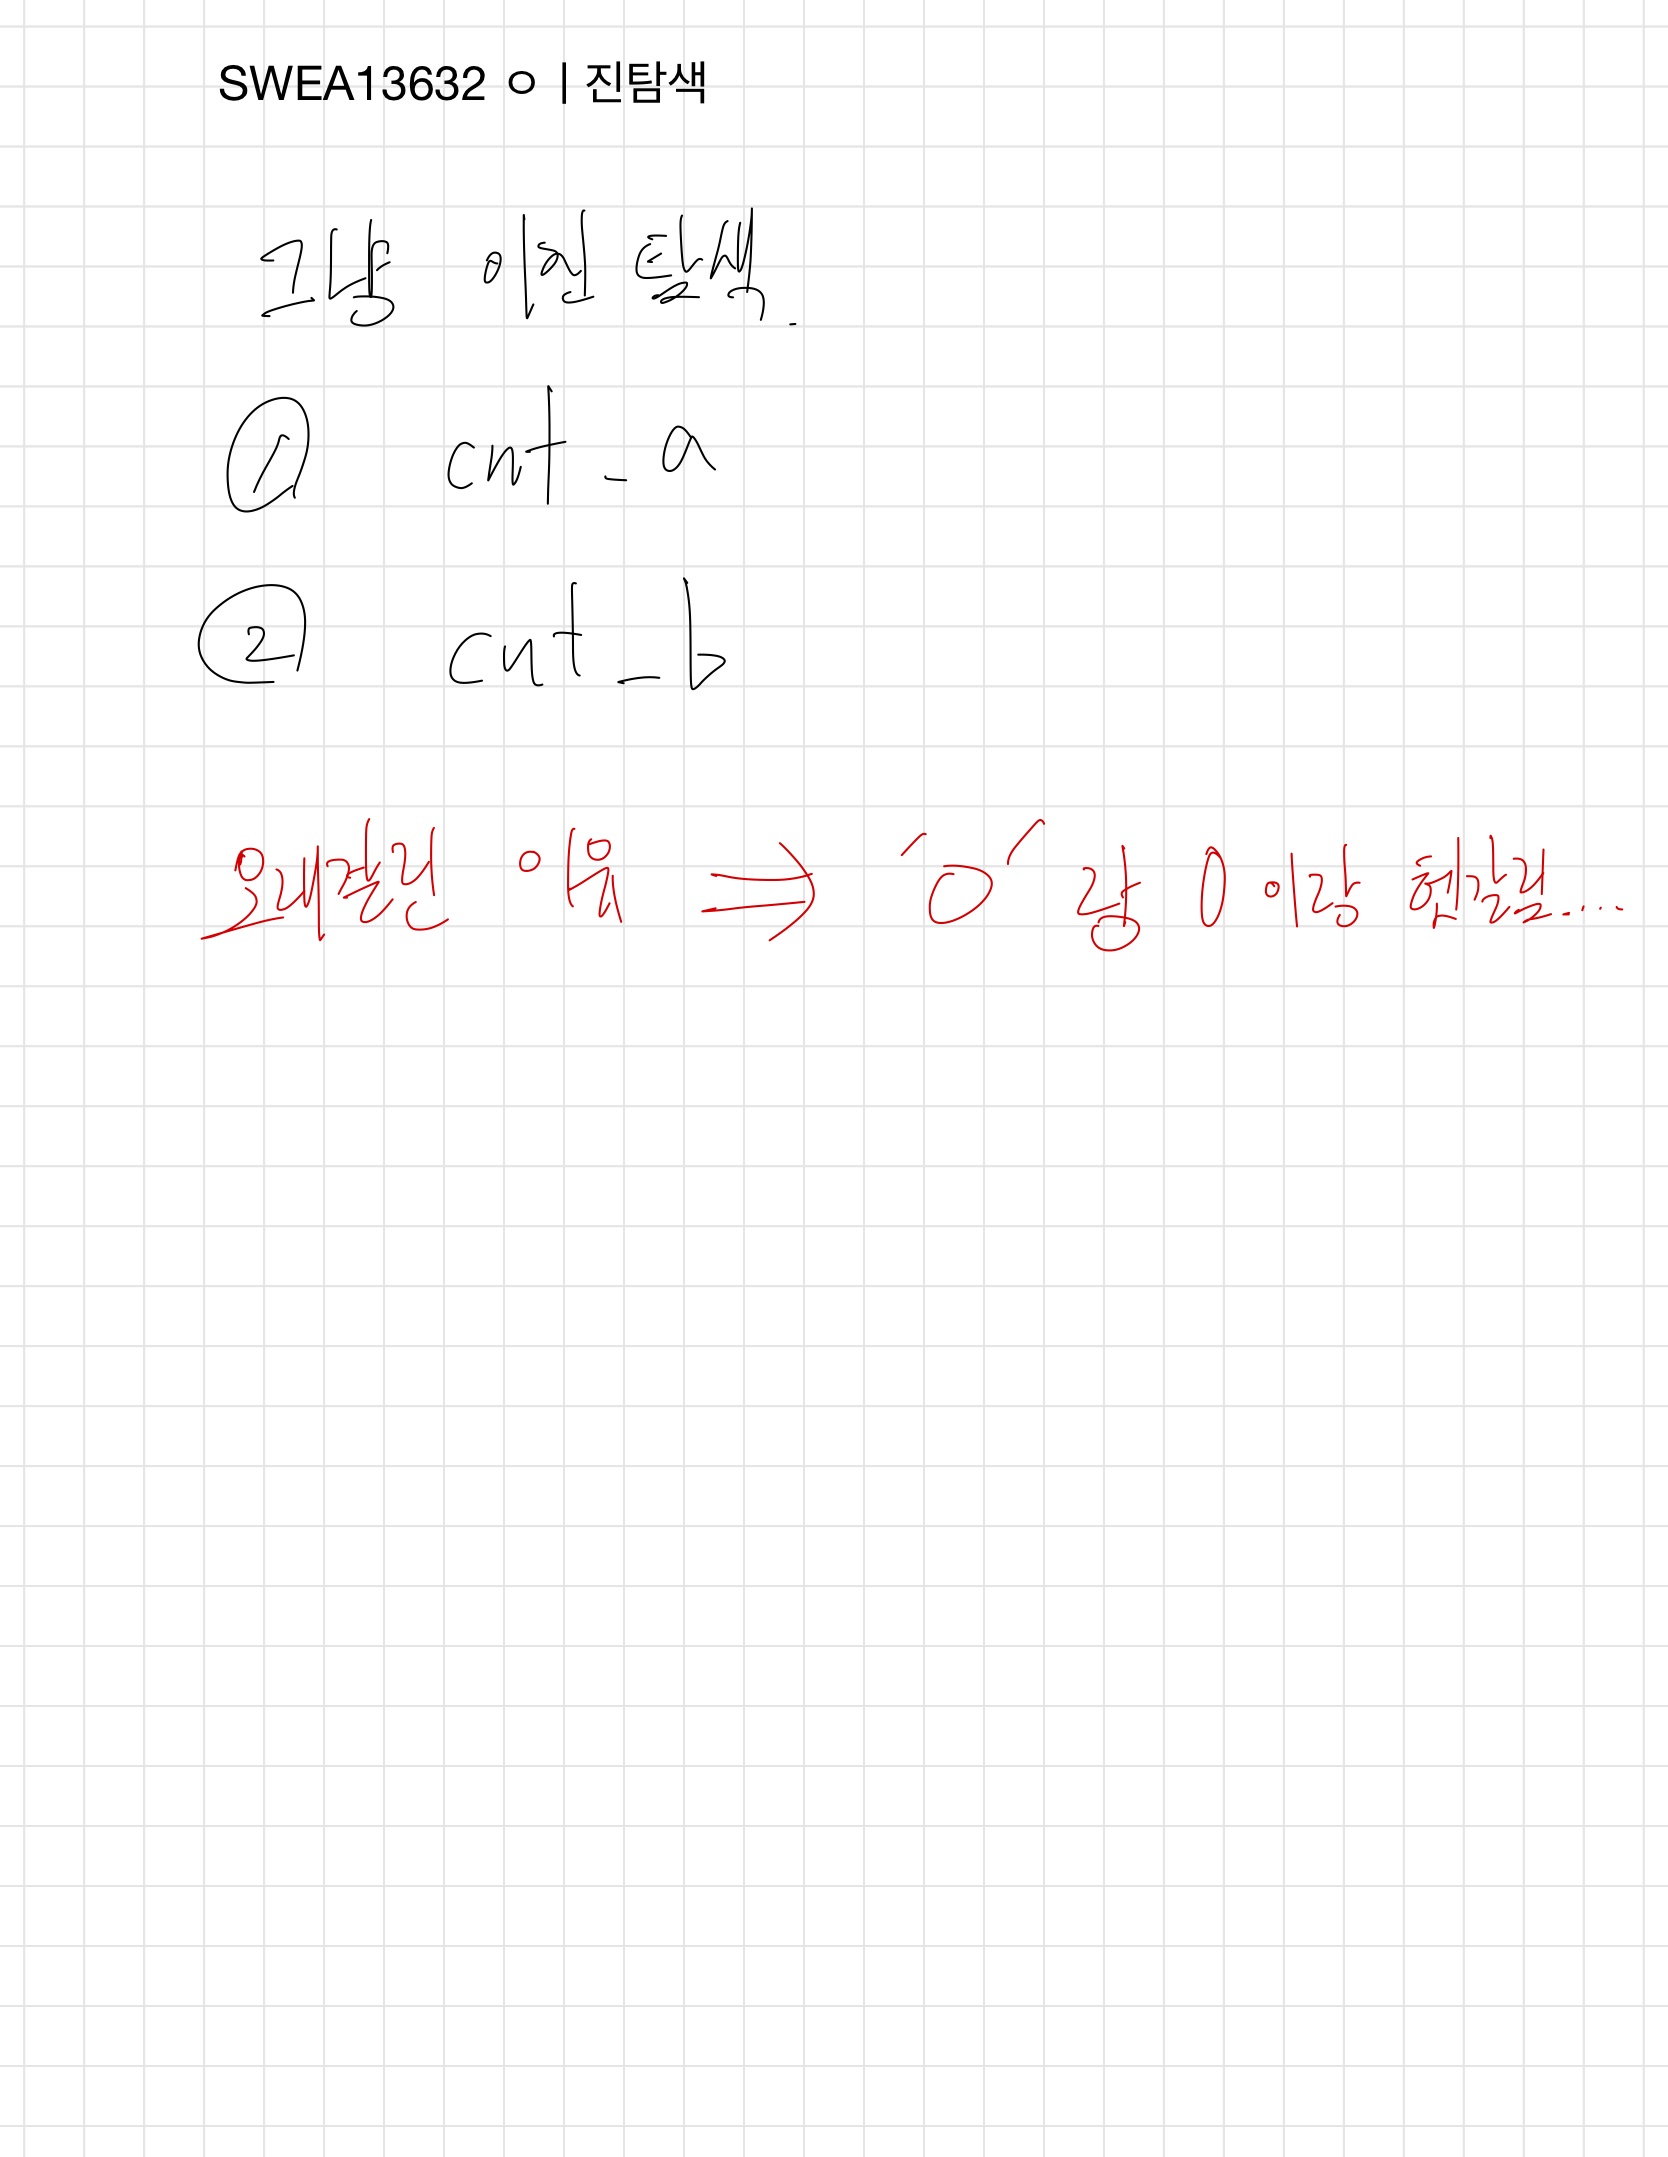 SWEA13632 ㅇㅣ진탐색
그냥 이진 탐색.
① cnt_a
② cnt_b
오래걸린 이유 ⇒ 'O'랑 0이랑 헷갈림....